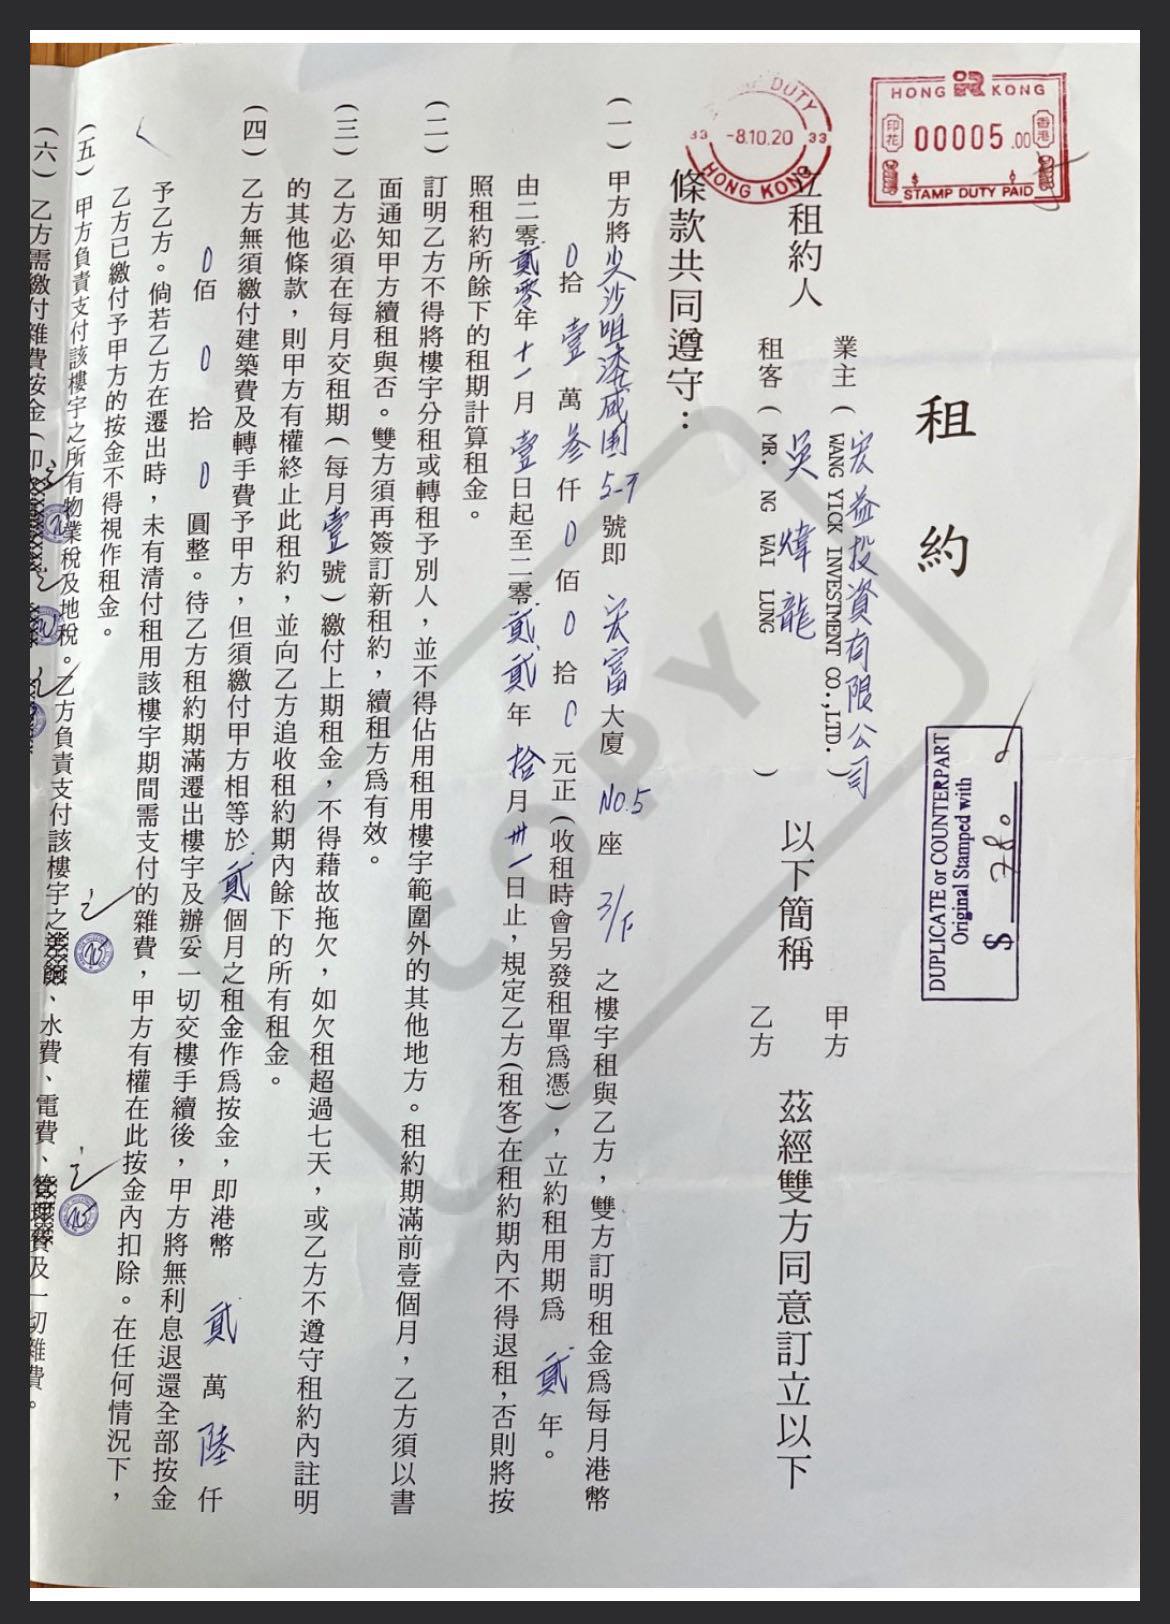 租約
HONG KONG
印花
00005.00
香港
STAMP DUTY PAID
DUTY
33 -8.10.20 33
HONG KONG
DUPLICATE or COUNTERPART
Original Stamped with
$ 780
COPY
立租約人
業主(宏益投資有限公司
WANG YICK INVESTMENT CO.,LTD.)
租客(吳煒龍
MR. NG WAI LUNG)
以下簡稱
甲方
乙方
茲經雙方同意訂立以下
條款共同遵守:
(一)甲方將尖沙咀漆咸圍5-7號即宏富大廈NO.5座3/F之樓宇租與乙方,雙方訂明租金爲每月港幣
0拾壹萬叁仟0佰0拾0元正(收租時會另發租單爲憑),立約租用期爲貳年。
由二零貳零年十一月壹日起至二零貳貳年拾月卅一日止,規定乙方(租客)在租約期內不得退租,否則將按
照租約所餘下的租期計算租金。
(二)訂明乙方不得將樓宇分租或轉租予別人,並不得佔用租用樓宇範圍外的其他地方。租約期滿前壹個月,乙方須以書
面通知甲方續租與否。雙方須再簽訂新租約,續租方爲有效。
(三)乙方必須在每月交租期(每月壹號)繳付上期租金,不得藉故拖欠,如欠租超過七天,或乙方不遵守租約內註明
的其他條款,則甲方有權終止此租約,並向乙方追收租約期內餘下的所有租金。
(四)乙方無須繳付建築費及轉手費予甲方,但須繳付甲方相等於貳個月之租金作爲按金,即港幣貳萬陸仟
0佰0拾0圓整。待乙方租約期滿遷出樓宇及辦妥一切交樓手續後,甲方將無利息退還全部按金
予乙方。倘若乙方在遷出時,未有清付租用該樓宇期間需支付的雜費,甲方有權在此按金內扣除。在任何情況下,
乙方已繳付予甲方的按金不得視作租金。
(五)甲方負責支付該樓宇之所有物業稅及地稅。乙方負責支付該樓宇之、水費、電費、管理費及一切雜費。
(六)乙方需繳付雜費按金(即